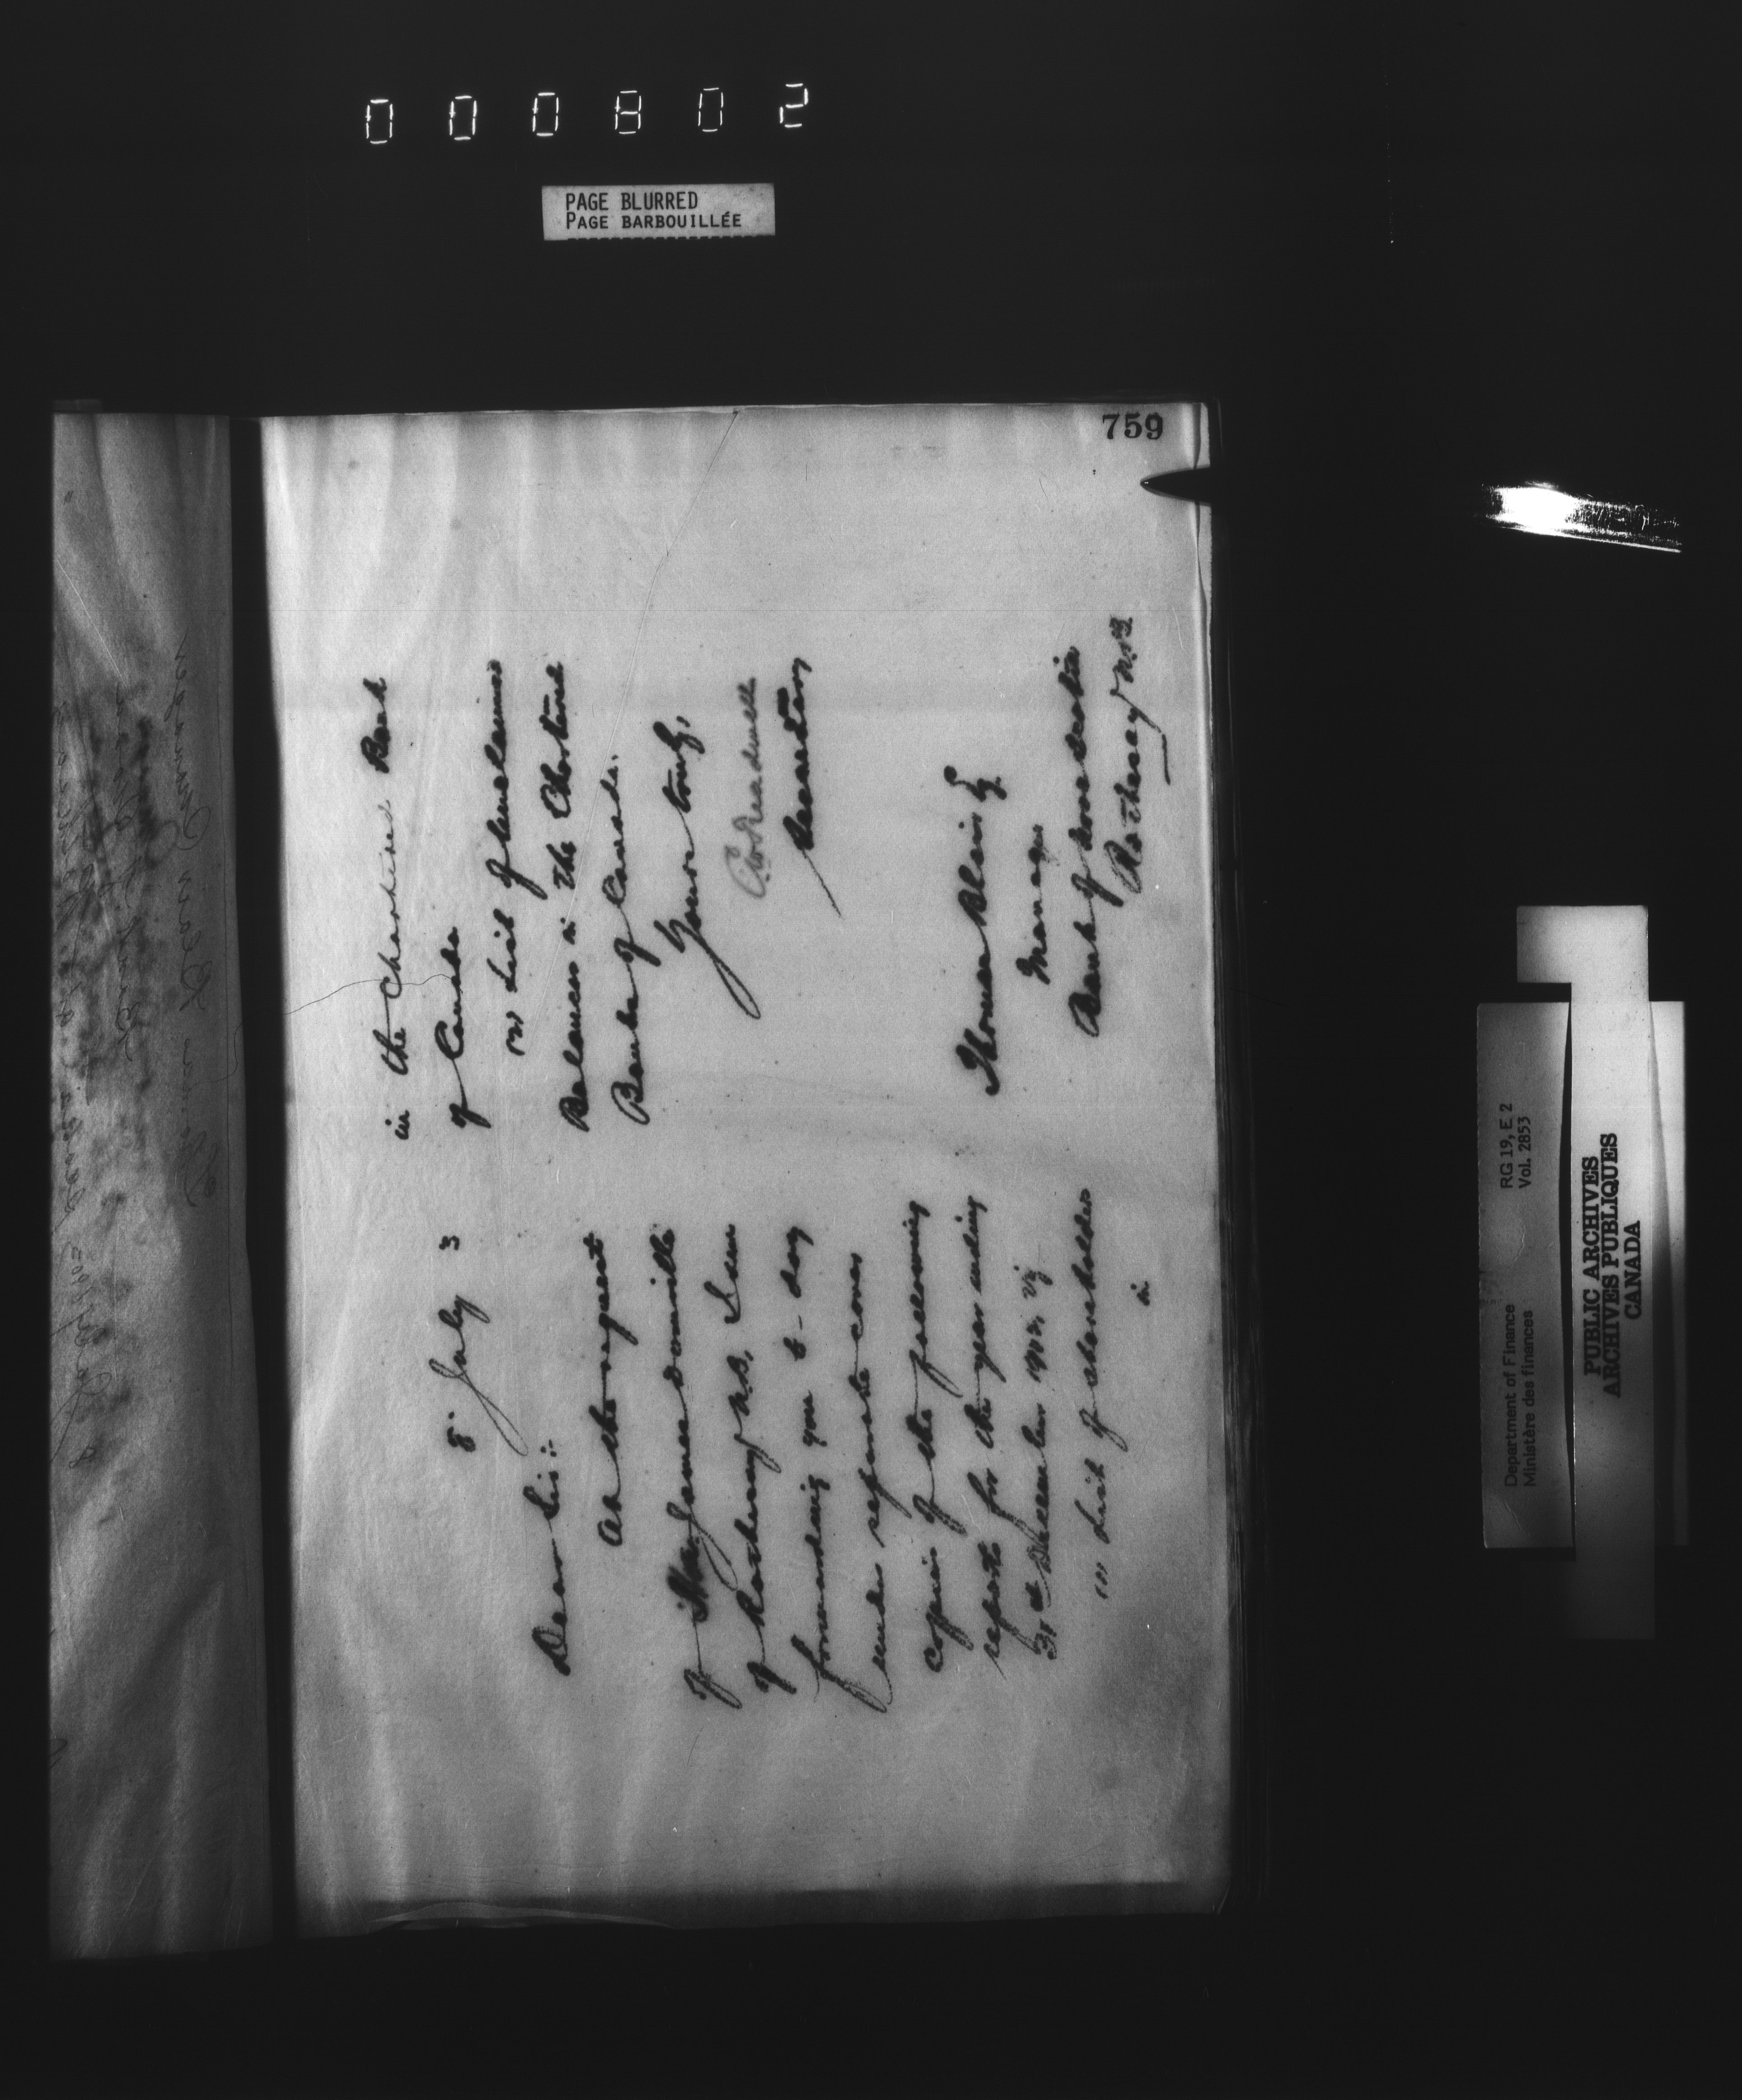 000802
PAGE BLURRED
PAGE BARBOUILLÉE
759
8. July 3
Dear Sir:-
At the request
of Mr. James Domville
of Rothesay N.B. I am
forwarding you to-day
under separate cover
copies of the following
reports for the year ending
31st December 1902, viz
(1) List of shareholders
in
in the Chartered Bank
of Canada
(2) List of unclaimed
Balances in the Chartered
Banks of Canada.
Yours truly,
Secretary
Thomas Blair Esq
Manager
Bank of Nova Scotia
Rothesay N.B.
Department of Finance
Ministère des finances
RG 19, E 2
Vol. 2853
PUBLIC ARCHIVES
ARCHIVES PUBLIQUES
CANADA